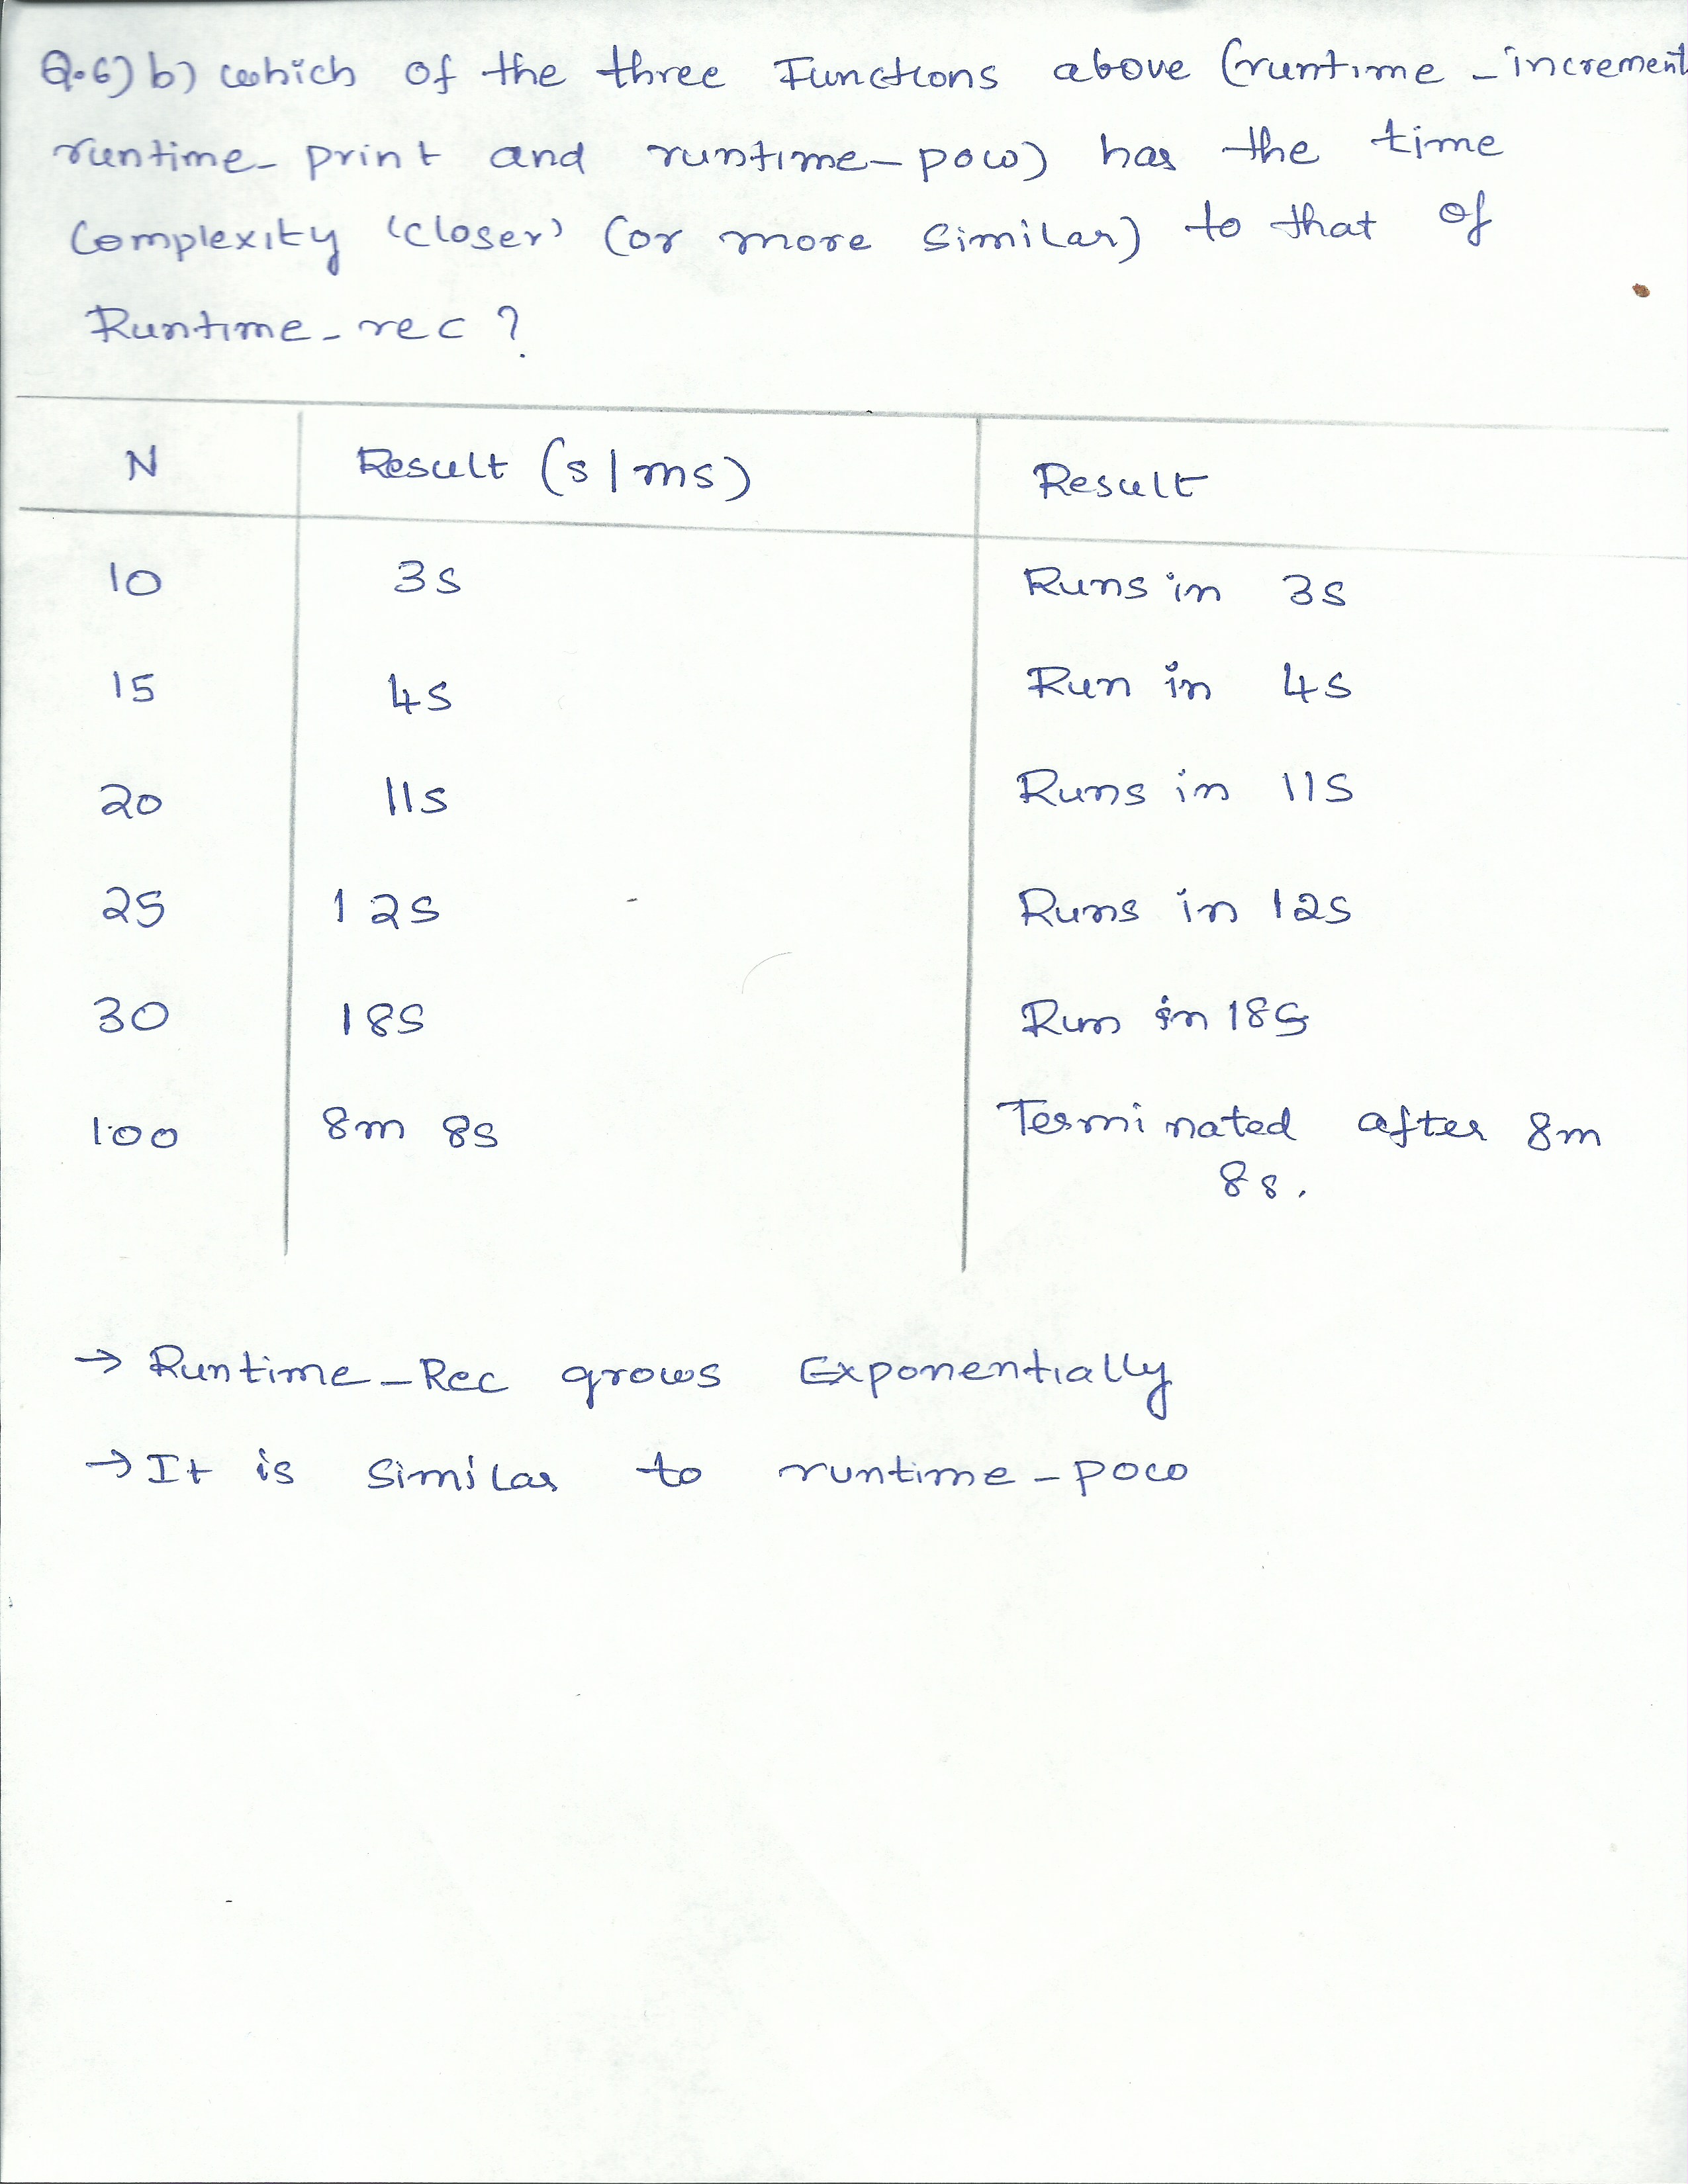 Q.6) b) which of the three Functions above (runtime_increment
runtime_print and runtime_pow) has the time
Complexity 'closer' (or more similar) to that of
Runtime_rec ?
N Result (s/ms) Result
10 3s Runs in 3s
15 4s Run in 4s
20 11s Runs in 11s
25 12s Runs in 12s
30 18s Run in 18s
100 8m 8s Terminated after 8m
8s.
→ Runtime_Rec grows Exponentially
→ It is similar to runtime_pow